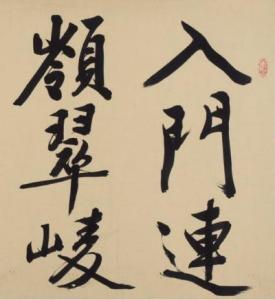 入門連
嶺翠崚